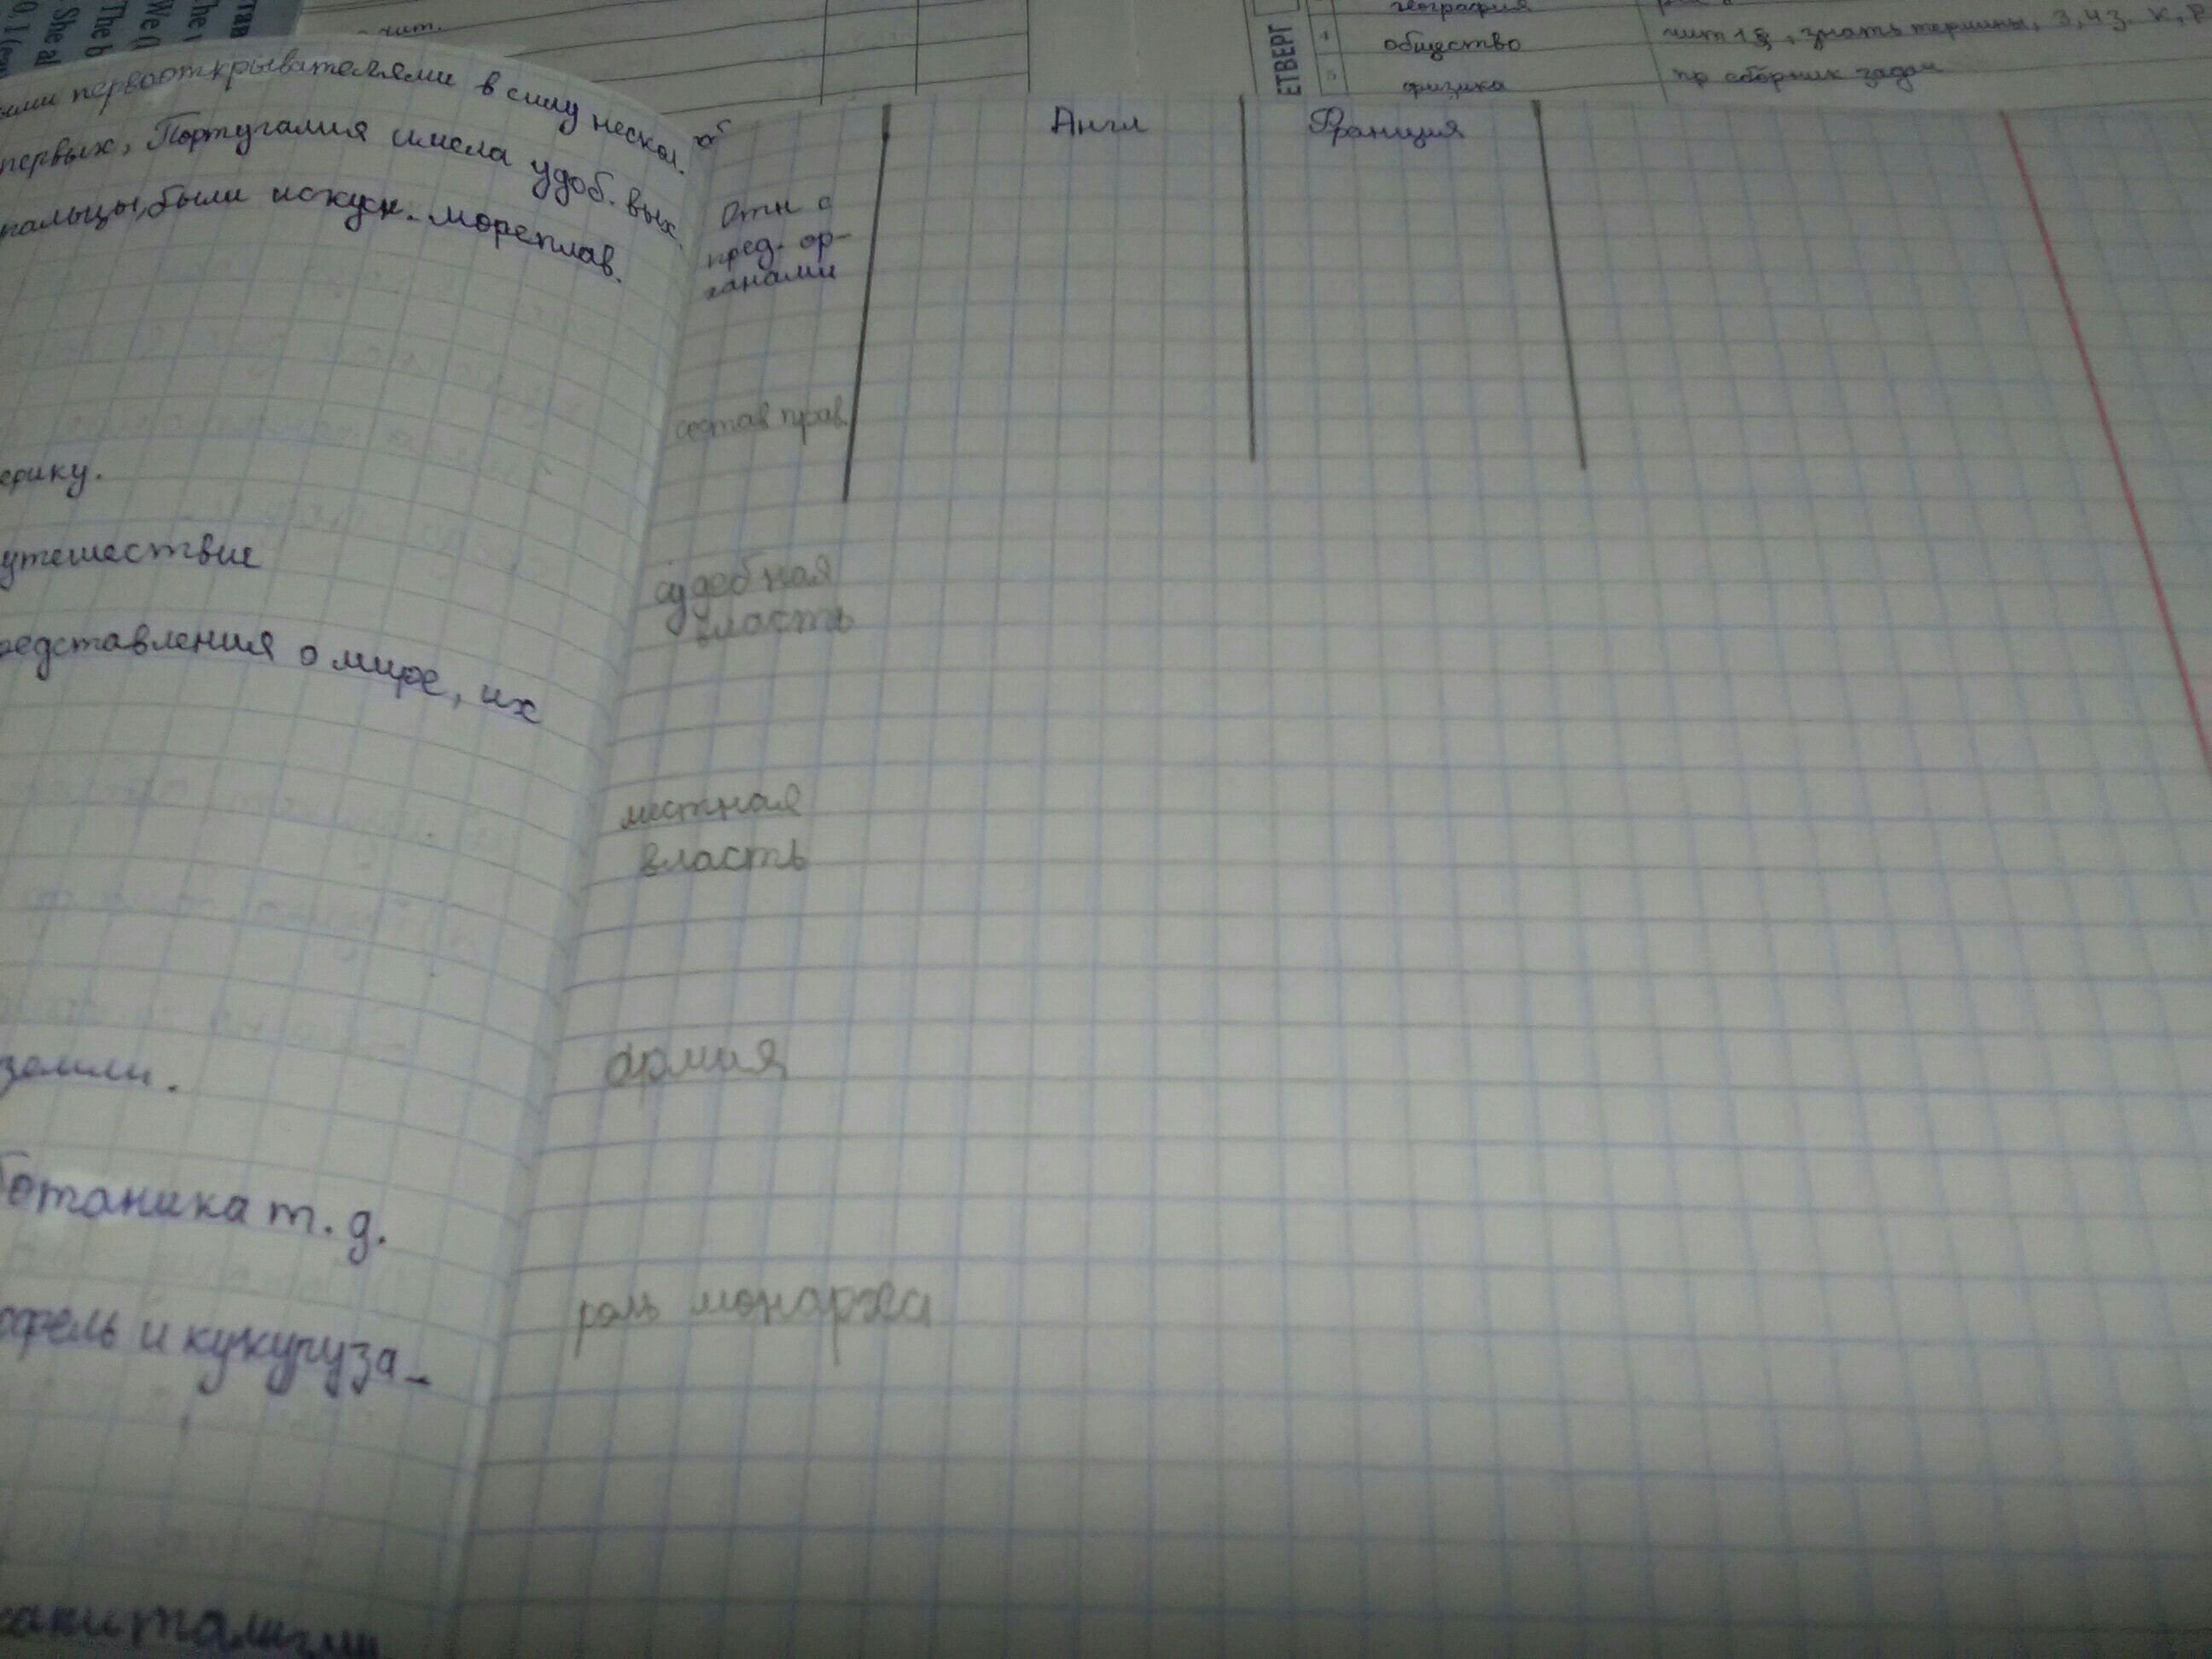 чит.
география
4 общество чит 1§, знать термины, 3,4 з. К, Р
5 физика по сборник задач
ЕТВЕРГ
The b
We (
She al
ыми первооткрывателями в силу нескол.
первых, Португалия имела удоб. вых.
гальцы, были искусн. мореплав.
ерику.
утешествие
редставления о мире, их
земли.
ботаника т. д.
офель и кукуруза-
Англ Франция
Отн с
пред. ор-
ганами
состав прав.
судебная
власть
местная
власть
армия
роль монарха